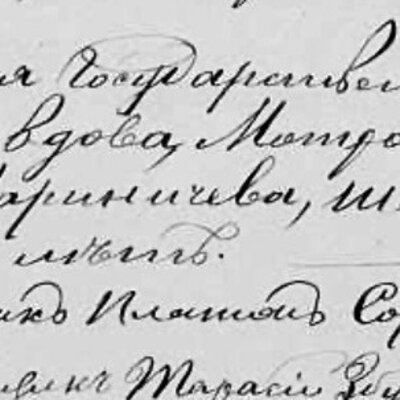 ня Государствен
вдова, Матро
ариничева, ш
лѣтъ.
икъ Платонъ Со
щикъ Тарасій